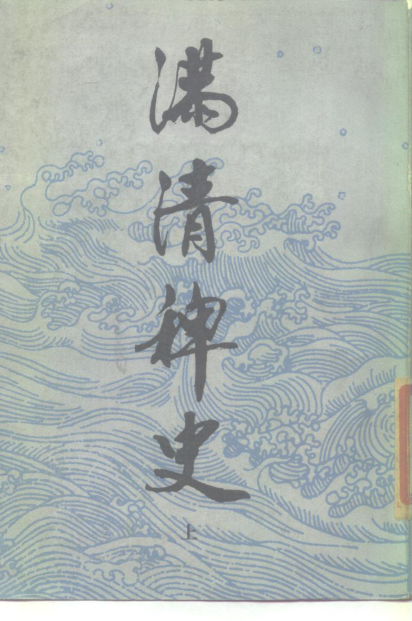 滿清稗史
上